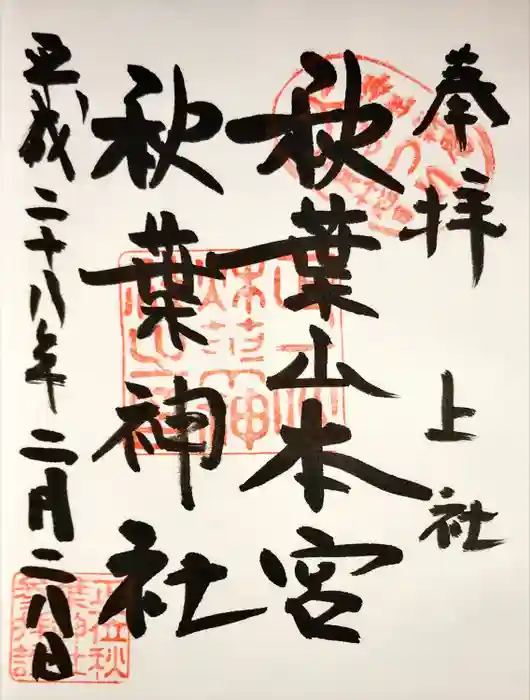 奉拝 上社
秋葉山本宮
秋葉神社
平成二十八年二月二八日